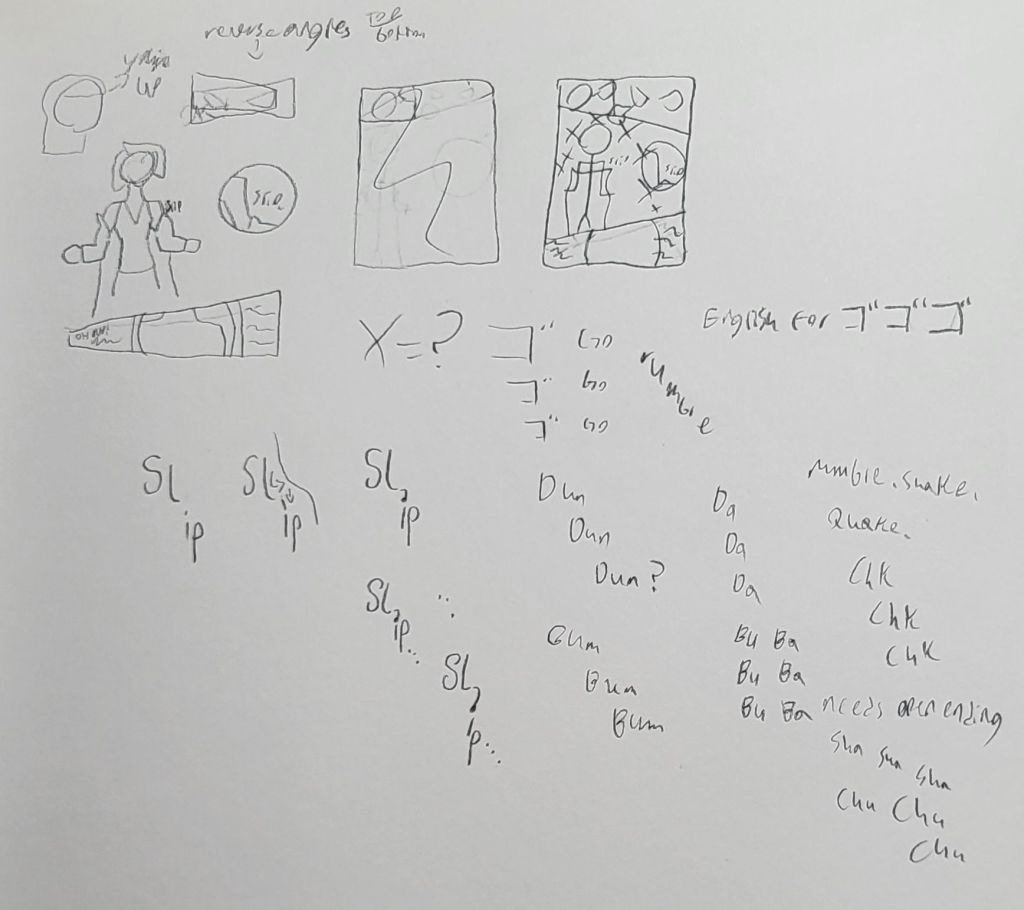 reverse angles top
bottom
up
slip
slip
slip
slip
OH
X=? ゴ GO
ゴ GO
ゴ GO
rumble
English for ゴゴゴ
SL
ip
SL
ip
SL
ip
SL
ip..
SL
ip..
Dun
Dun
Dun?
Bum
Bum
Bum
Da
Da
Da
Bu Ba
Bu Ba
Bu Ba needs open ending
rumble. shake.
Quake.
Chk
Chk
Chk
Sha Sha Sha
Chu Chu
Chu